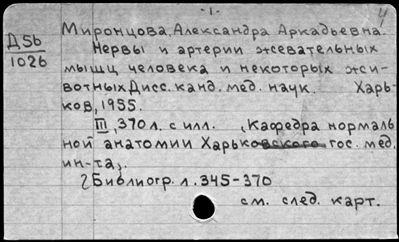 -1-
4
Д5б
102б
Миронцова, Александра Аркадьевна.
Нервы и артерии жевательных
мышц человека и некоторых жи-
вотных Дисс. канд. мед. наук. Харь-
ков, 1955.
III, 370 л. с илл. (Кафедра нормаль
ной анатомии Харьковского гос. мед.
ин-та).
Библиогр. л. 345-370
см. след. карт.